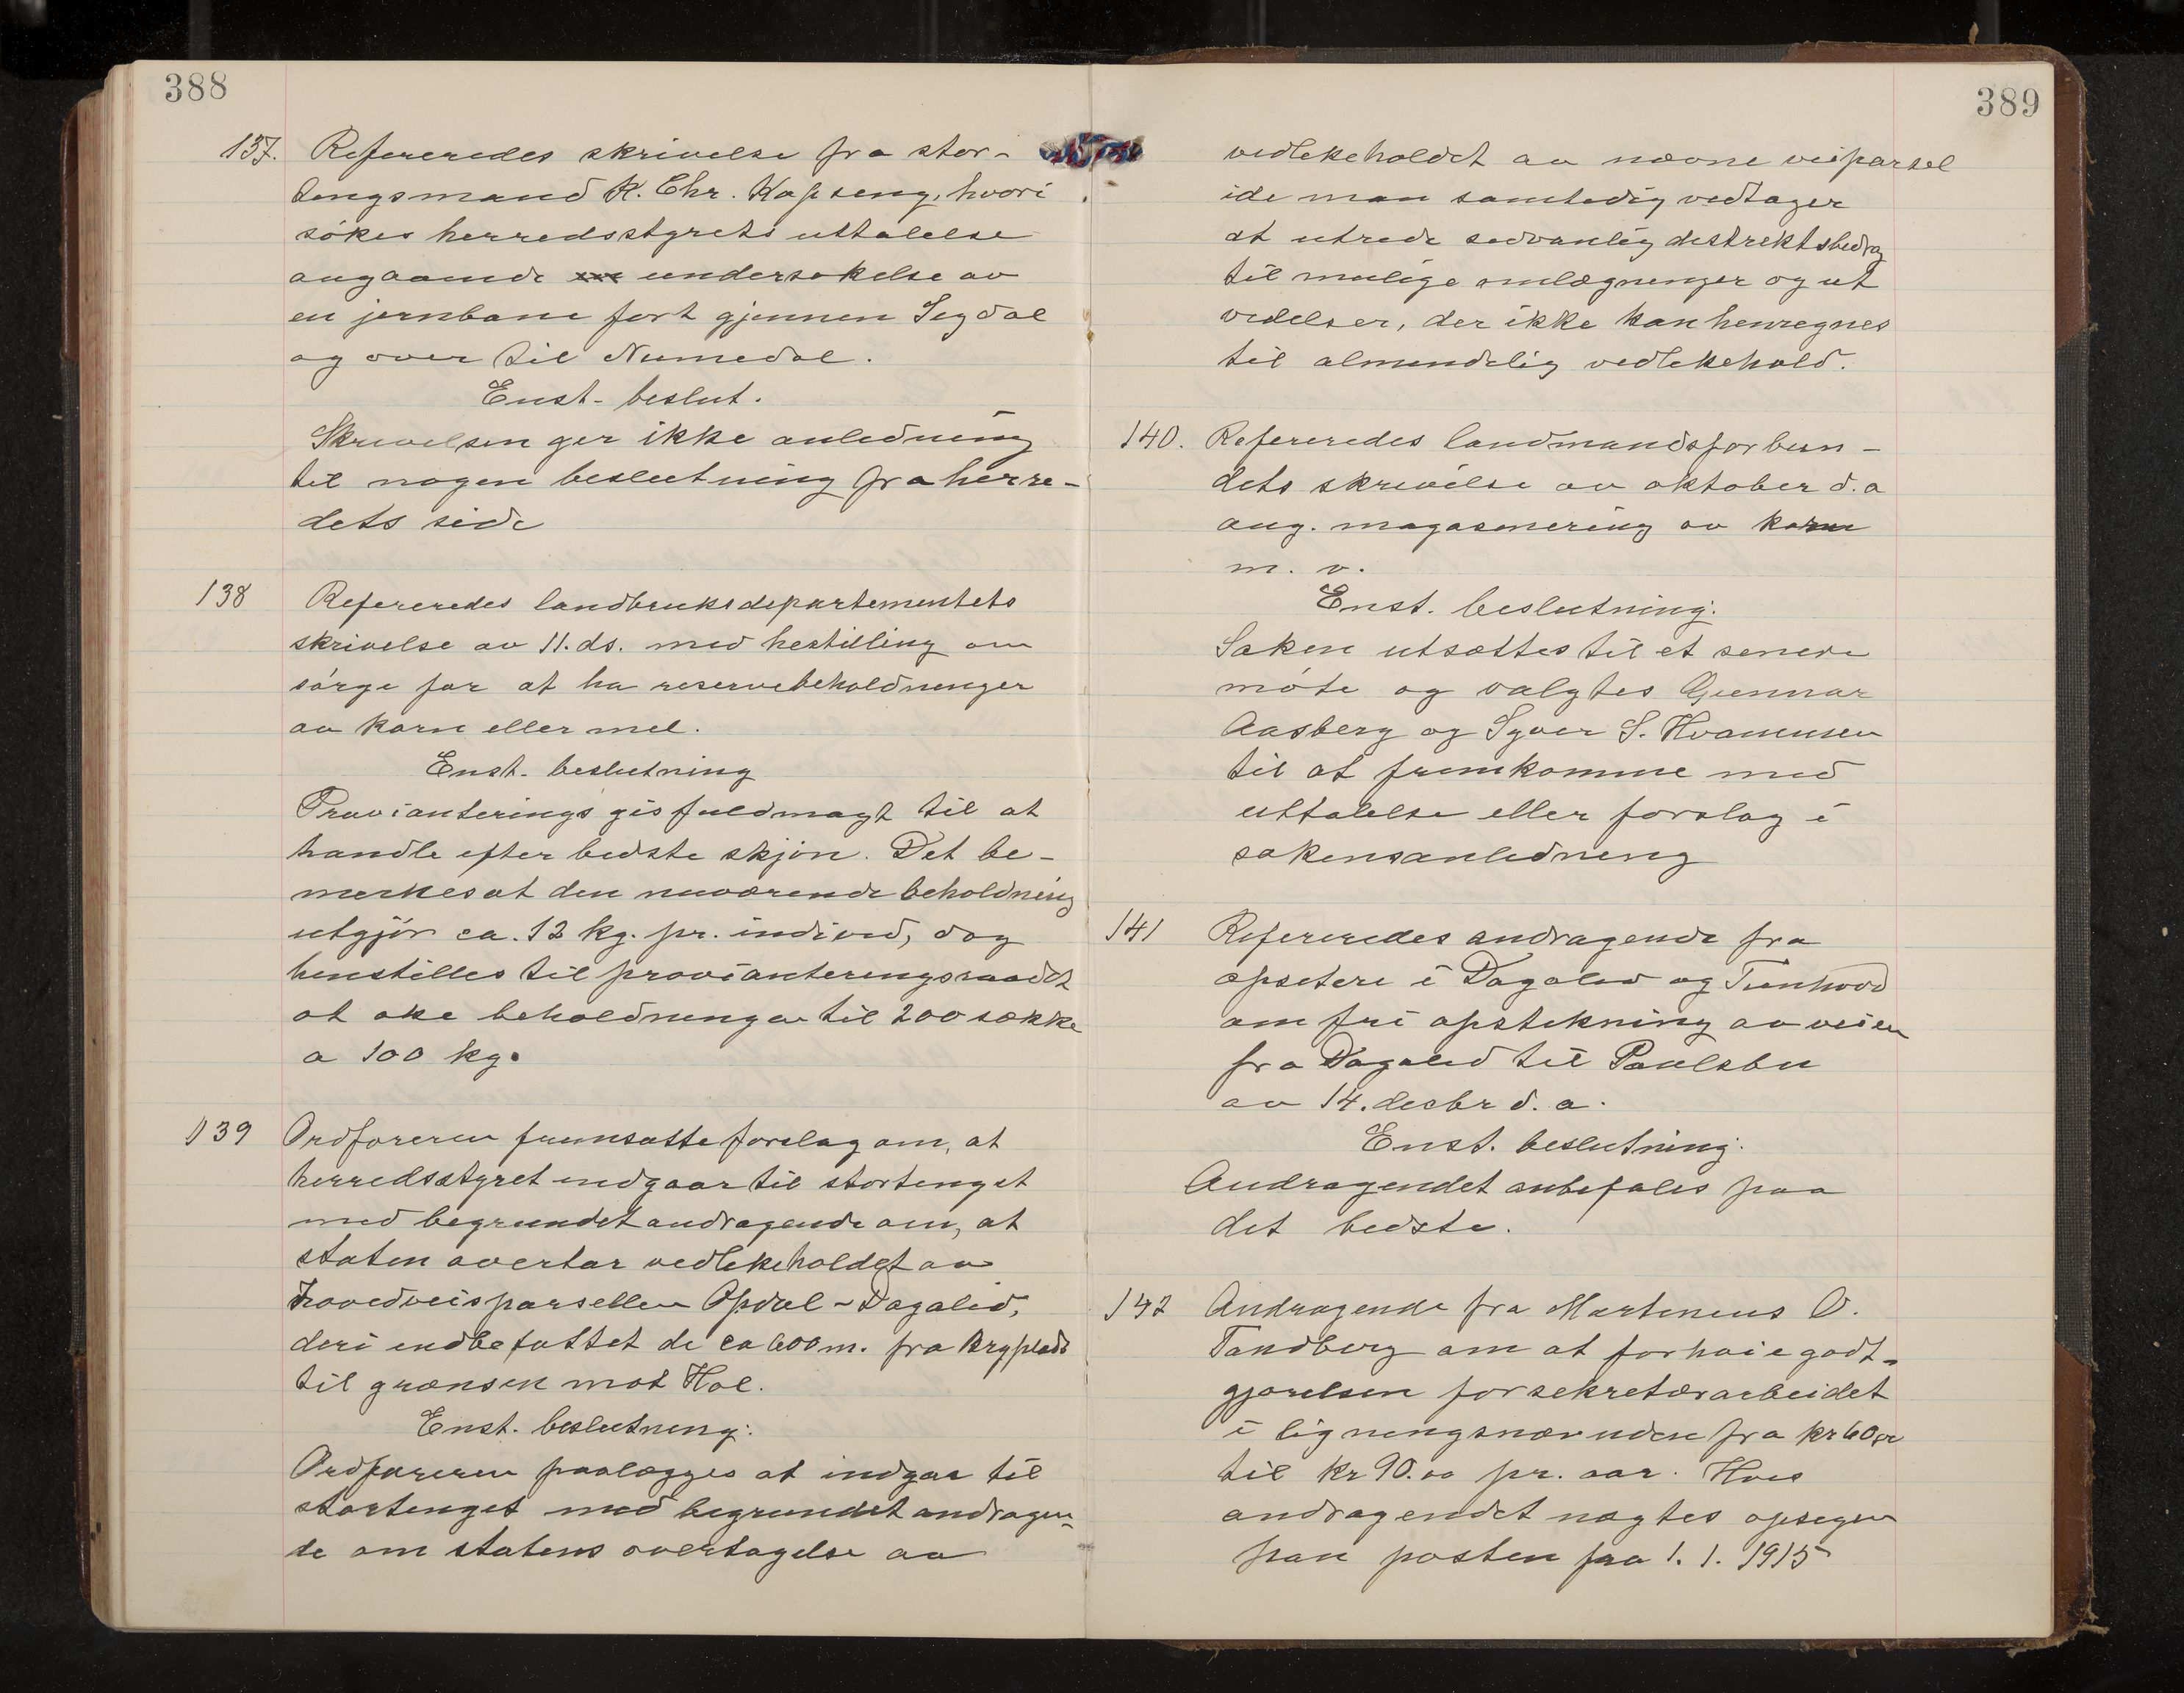 388
137. Refereredes skrivelse fra stor-
tingsmand K. Chr. Kapseng, hvori
søkes herredsstyrets uttalelse
angaaende undersøkelse av
en jernbane fort gjennen Sigdal
og over til Numedal.
Enst. beslut.
Skrivelsen ger ikke anledning
til nogen beslutning fra herre-
dets side
138 Refereredes landbruksdepartementets
skrivelse av 11. ds. med hestilling om
sørge for at ha reservebeholdninger
av korn eller mel.
Enst. beslutning
Provianterings gis fuldmagt til at
handle efter bedste skjøn. Det be-
merkes at den nuværende beholdning
utgjør ca. 12 kg. pr. individ, dog
henstilles til provianteringsraadet
at øke beholdningen til 200 sække
a 100 kg.
139 Ordføreren fremsatte forslag om, at
herredsstyret indgaar til stortinget
med begrundet andragende om, at
staten overtar vedlikeholdet av
hovedveisparsellen Opdal - Dagalid,
deri indbefattet de ca 600 m. fra Bryplads
til grænsen mot Hol.
Enst. beslutning:
Ordføreren paalægges at indgaa til
stortinget med begrundet andragen-
de om statens overtagelse av
389
vedlikeholdet av nævne veiparsel
ide man samtidig vedtager
at utrede sedvanlig distriktsbedrag
til mulige omlægninger og ut
videlser, der ikke kan henregnes
til almindelig vedlikehold.
140. Refereredes landmandsforbun-
dets skrivelse av oktober d.a
ang. magasinering av korn
m. v.
Enst. beslutning:
Saken utsættes til et senere
møte og valgtes Gunnar
Aasberg og Syver S. Hvammen
til at fremkomme med
uttalelse eller forslag i
sakensanledning
141 Refereredes andragende fra
opsetere i Dagalid og Tunhovd
om fri opstikning av veien
fra Dagalid til Paulsbu
av 14. decbr d. a.
Enst. beslutning:
Andragendet anbefales paa
det bedste.
142 Andragende fra Martinius O.
Tandberg om at forhøie godt-
gjørelsen for sekretærarbeidet
i ligningsnævnden fra kr 60,00
til kr 90.00 pr. aar. Hvis
andragendet nægtes opsiger
han posten fra 1. 1. 1915